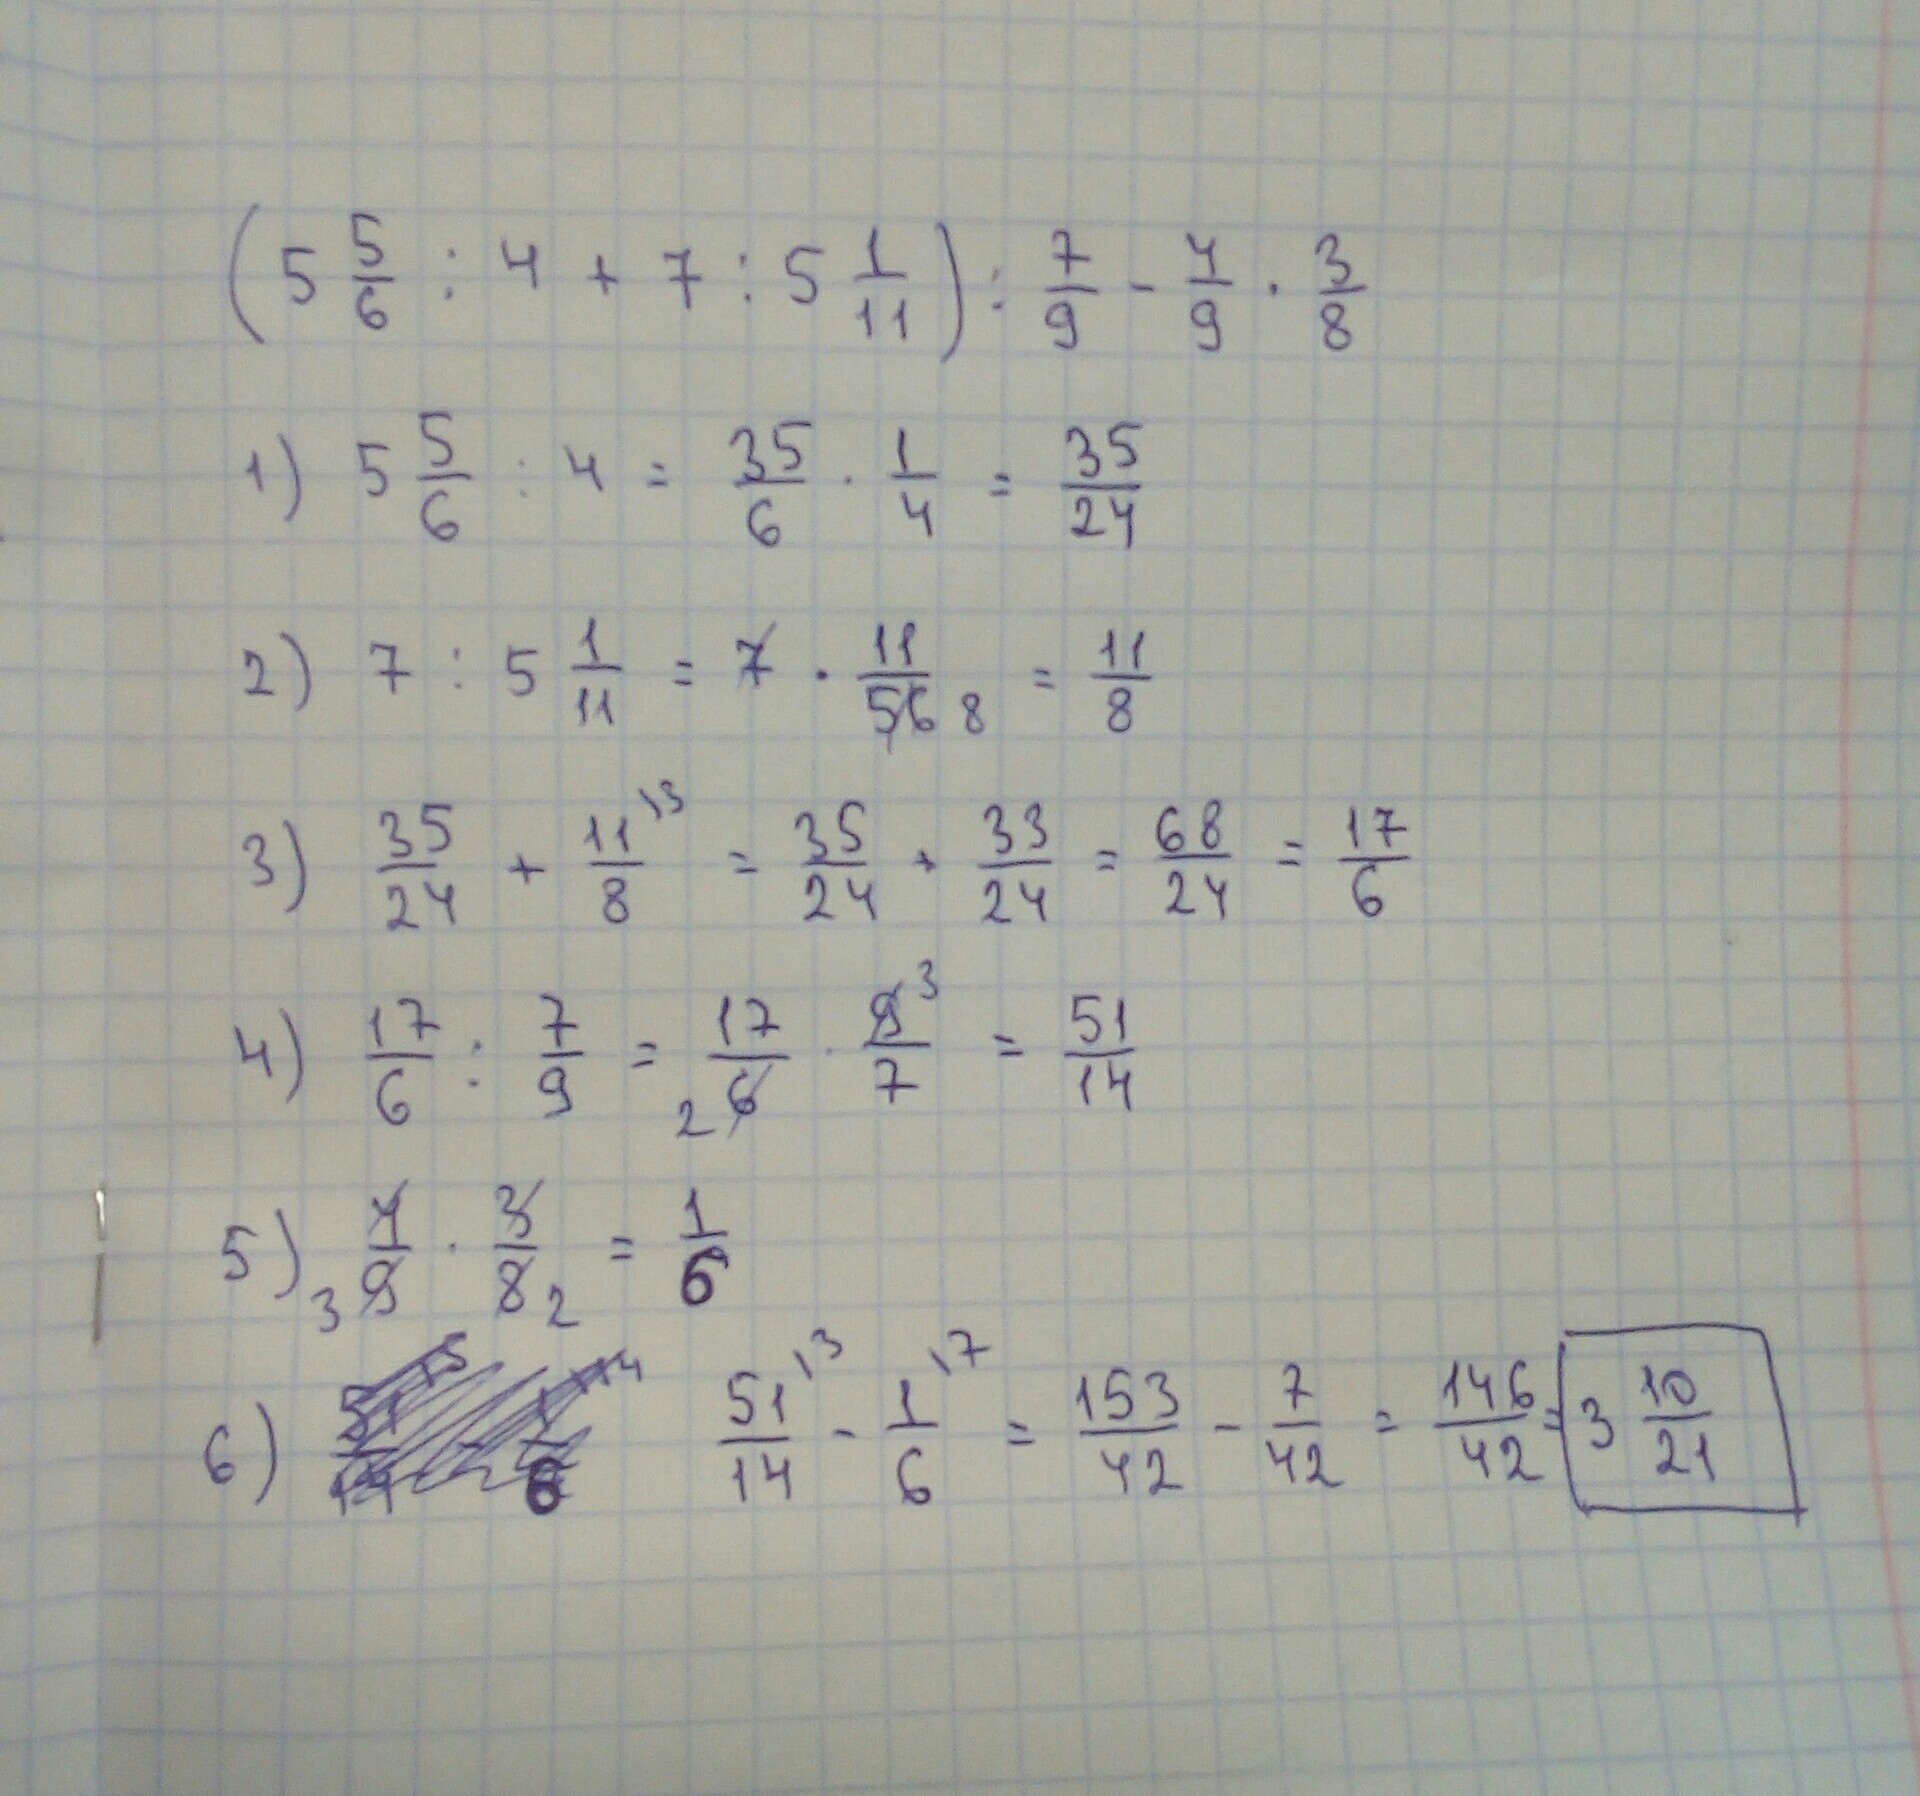 (5 5/6 : 4 + 7 : 5 1/11) : 7/9 - 4/9 · 3/8
1) 5 5/6 : 4 = 35/6 · 1/4 = 35/24
2) 7 : 5 1/11 = 7 · 11/56 8 = 11/8
3) 35/24 + 11/8 \3 = 35/24 + 33/24 = 68/24 = 17/6
4) 17/6 : 7/9 = 2 17/6 · 9/7 3 = 51/14
5) 3 4/9 · 3/8 2 = 1/6
6) 51/14 \3 - 1/6 \7 = 153/42 - 7/42 = 146/42 = 3 10/21